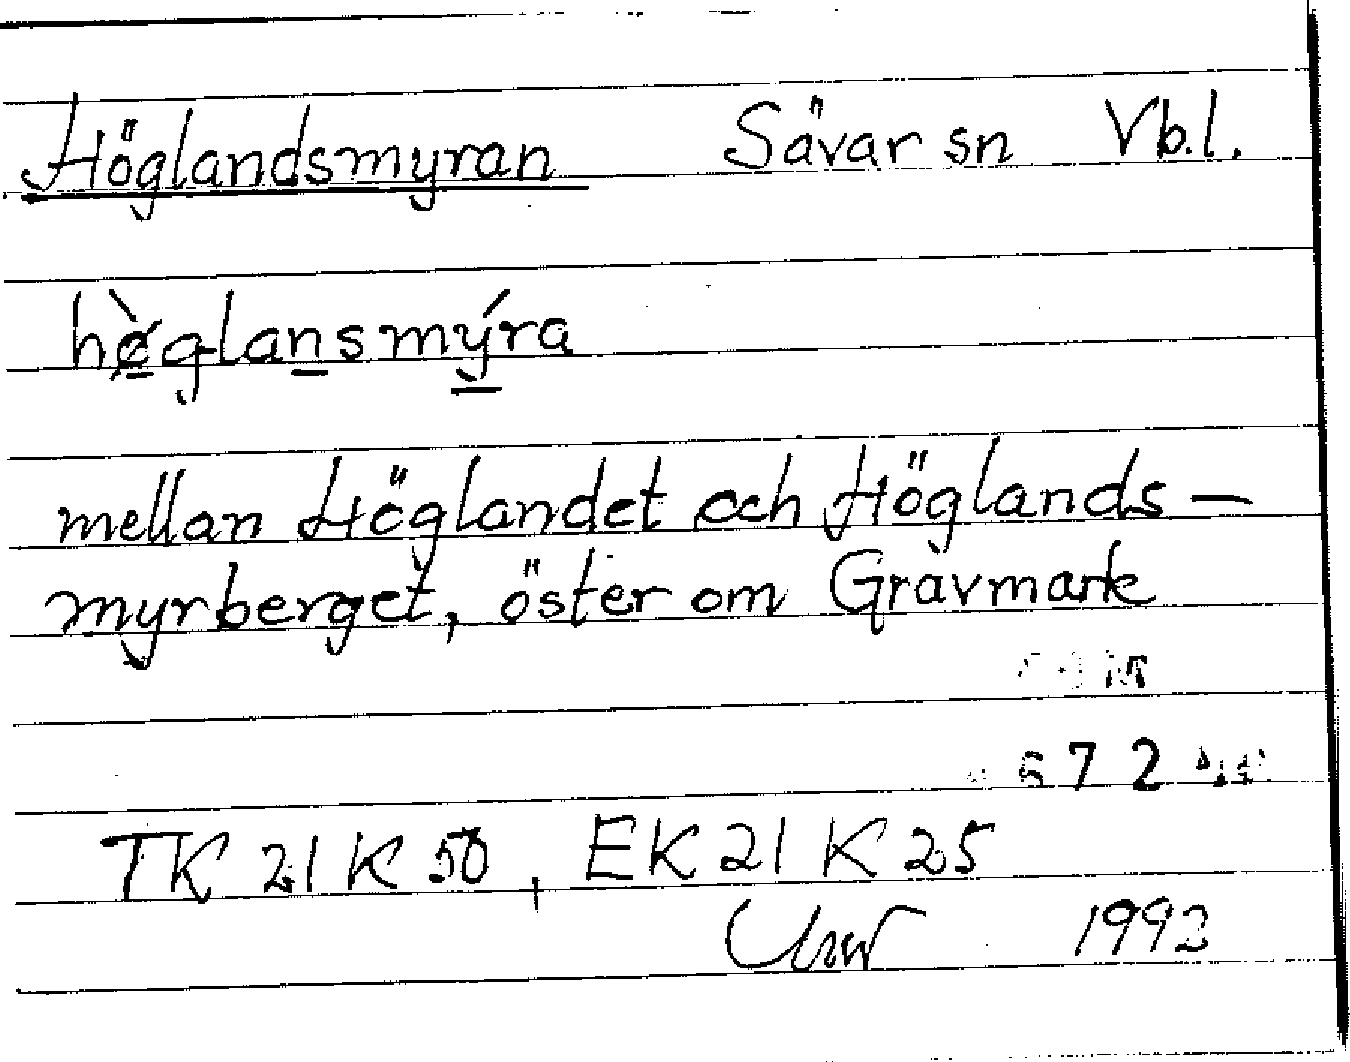 Höglandsmyran Sävar sn Vb.l.
hø̀glansmýra
mellan Höglandet och Höglands-
myrberget, öster om Gravmark
672
TK 21 K 50, EK 21 K 25
1992